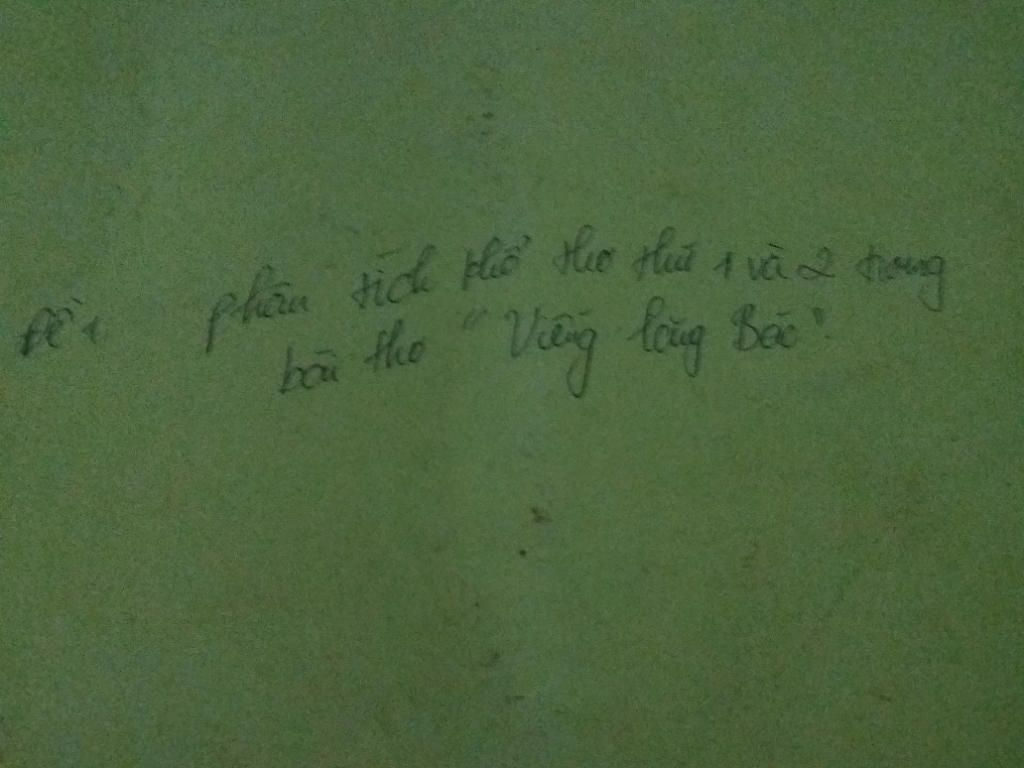 Đề 1 phân tích khổ thơ thứ 1 và 2 trong
bài thơ "Viếng lăng Bác".